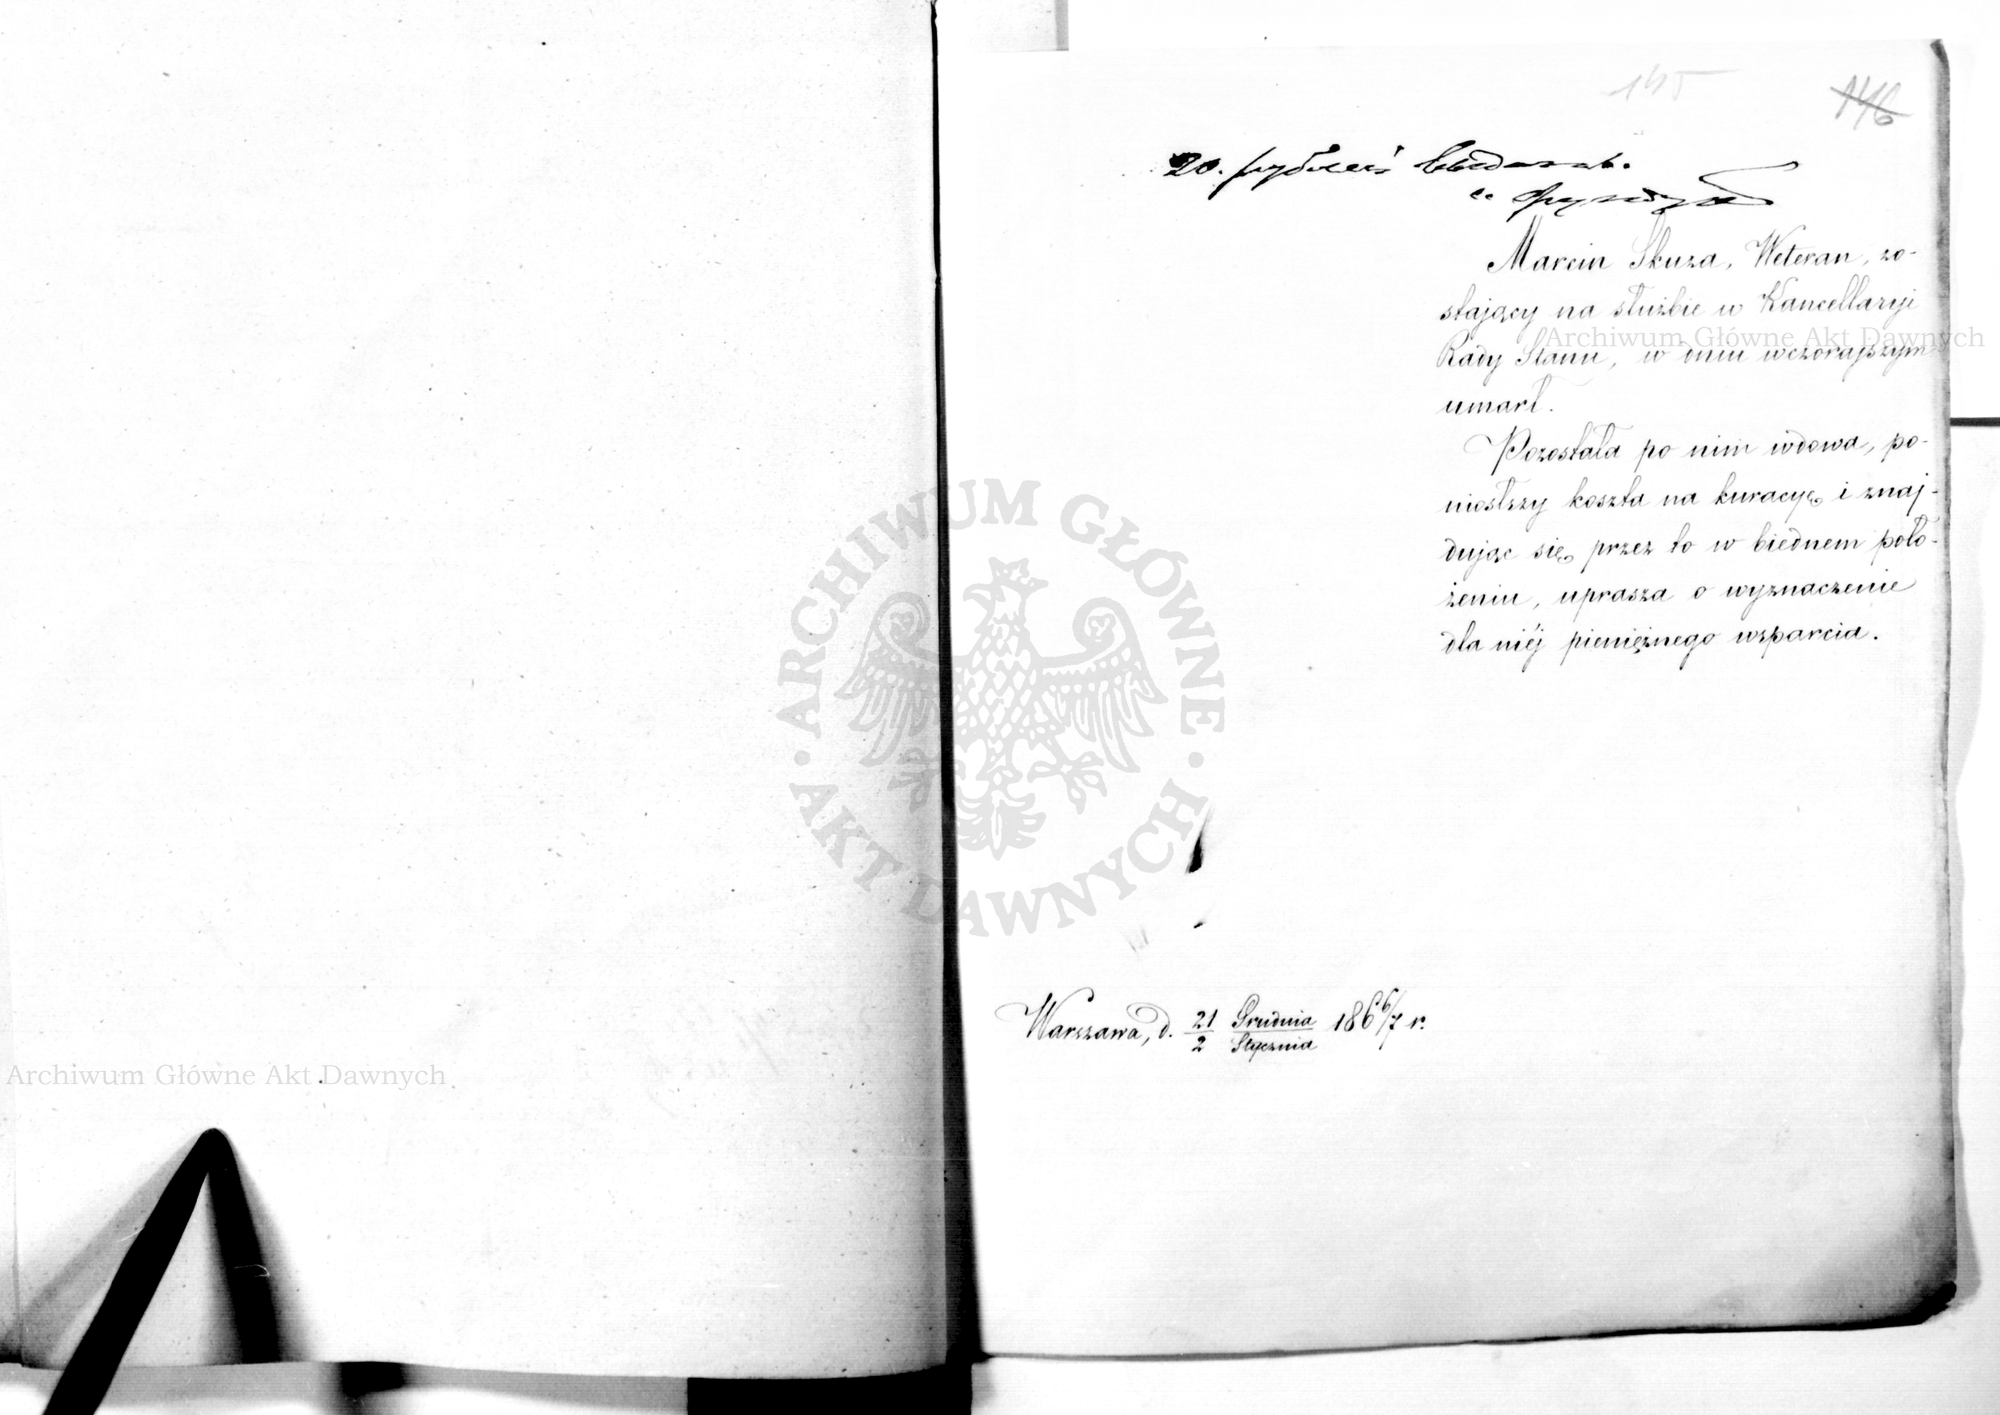 145
146
20. рублей
Marcin Skuza, Weteran, zo-
stający na służbie w Kancellaryi
Rady Stanu, w dniu wczorajszym
umarł.
Pozostała po nim wdowa, po-
niosłszy koszta na kuracyę i znaj-
dując się przez to w biednem poło-
żeniu, uprasza o wyznaczenie
dla niéj pieniężnego wsparcia.
Warszawa, d. 21/2 Grudnia/Stycznia 1866/7 r.
Archiwum Główne Akt Dawnych
ARCHIWUM GŁÓWNE
· AKT DAWNYCH ·
Archiwum Główne Akt Dawnych